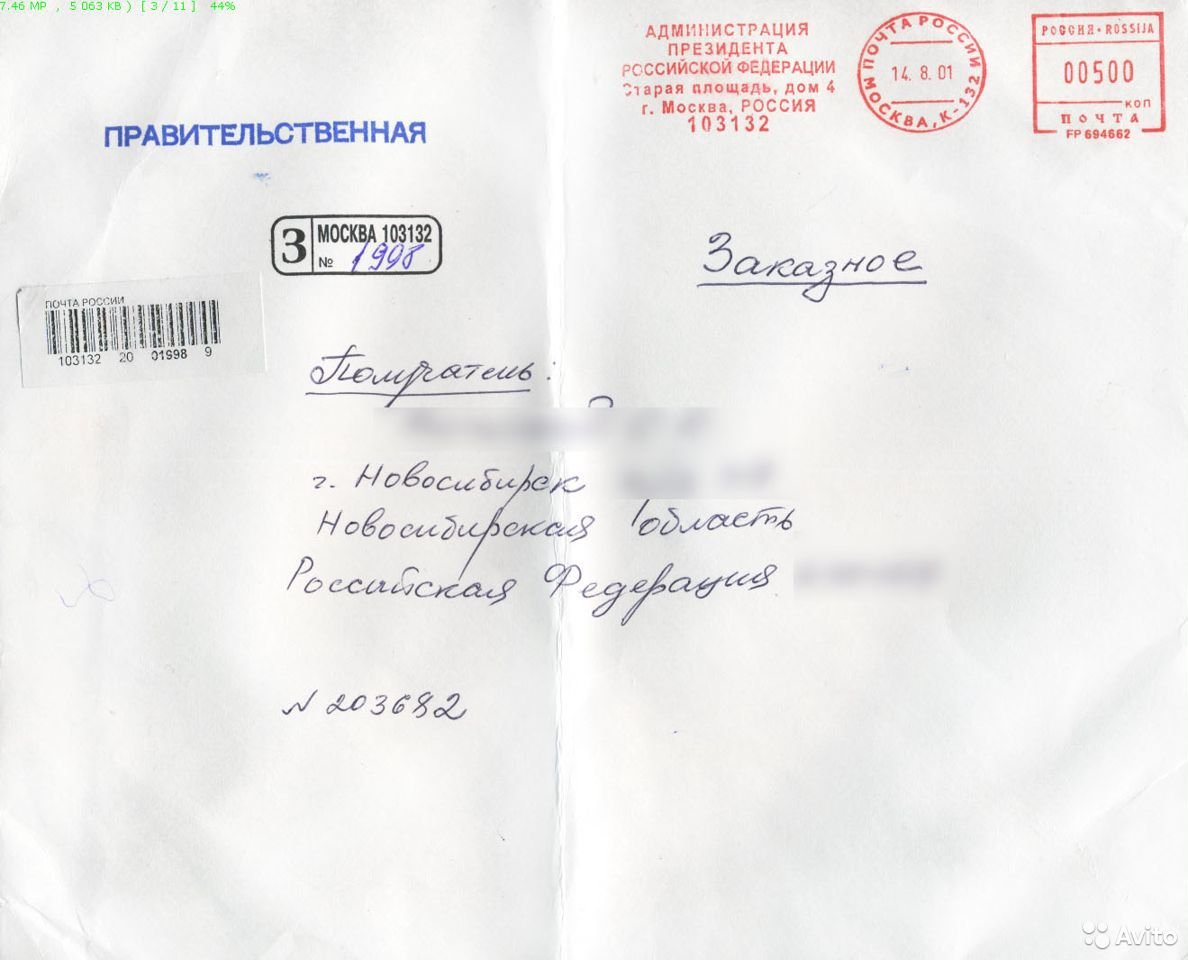 7.46 MP , 5 063 KB ) [ 3 / 11 ] 44%
АДМИНИСТРАЦИЯ
ПРЕЗИДЕНТА
РОССИЙСКОЙ ФЕДЕРАЦИИ
Старая площадь, дом 4
г. Москва, РОССИЯ
103132
ПОЧТА РОССИИ
14. 8. 01
МОСКВА, К-132
РОССИЯ • ROSSIJA
00500
коп
ПОЧТА
FP 694662
ПРАВИТЕЛЬСТВЕННАЯ
З МОСКВА 103132
№ 1998
Заказное
ПОЧТА РОССИИ
103132 20 01998 9
Получатель:
г. Новосибирск
Новосибирская область
Российская Федерация
N 203682
Avito